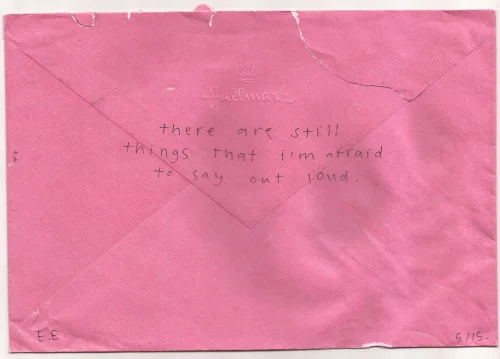 Hallmark
there are still
things that i'm afraid
to say out loud.
E.E.
5/15.